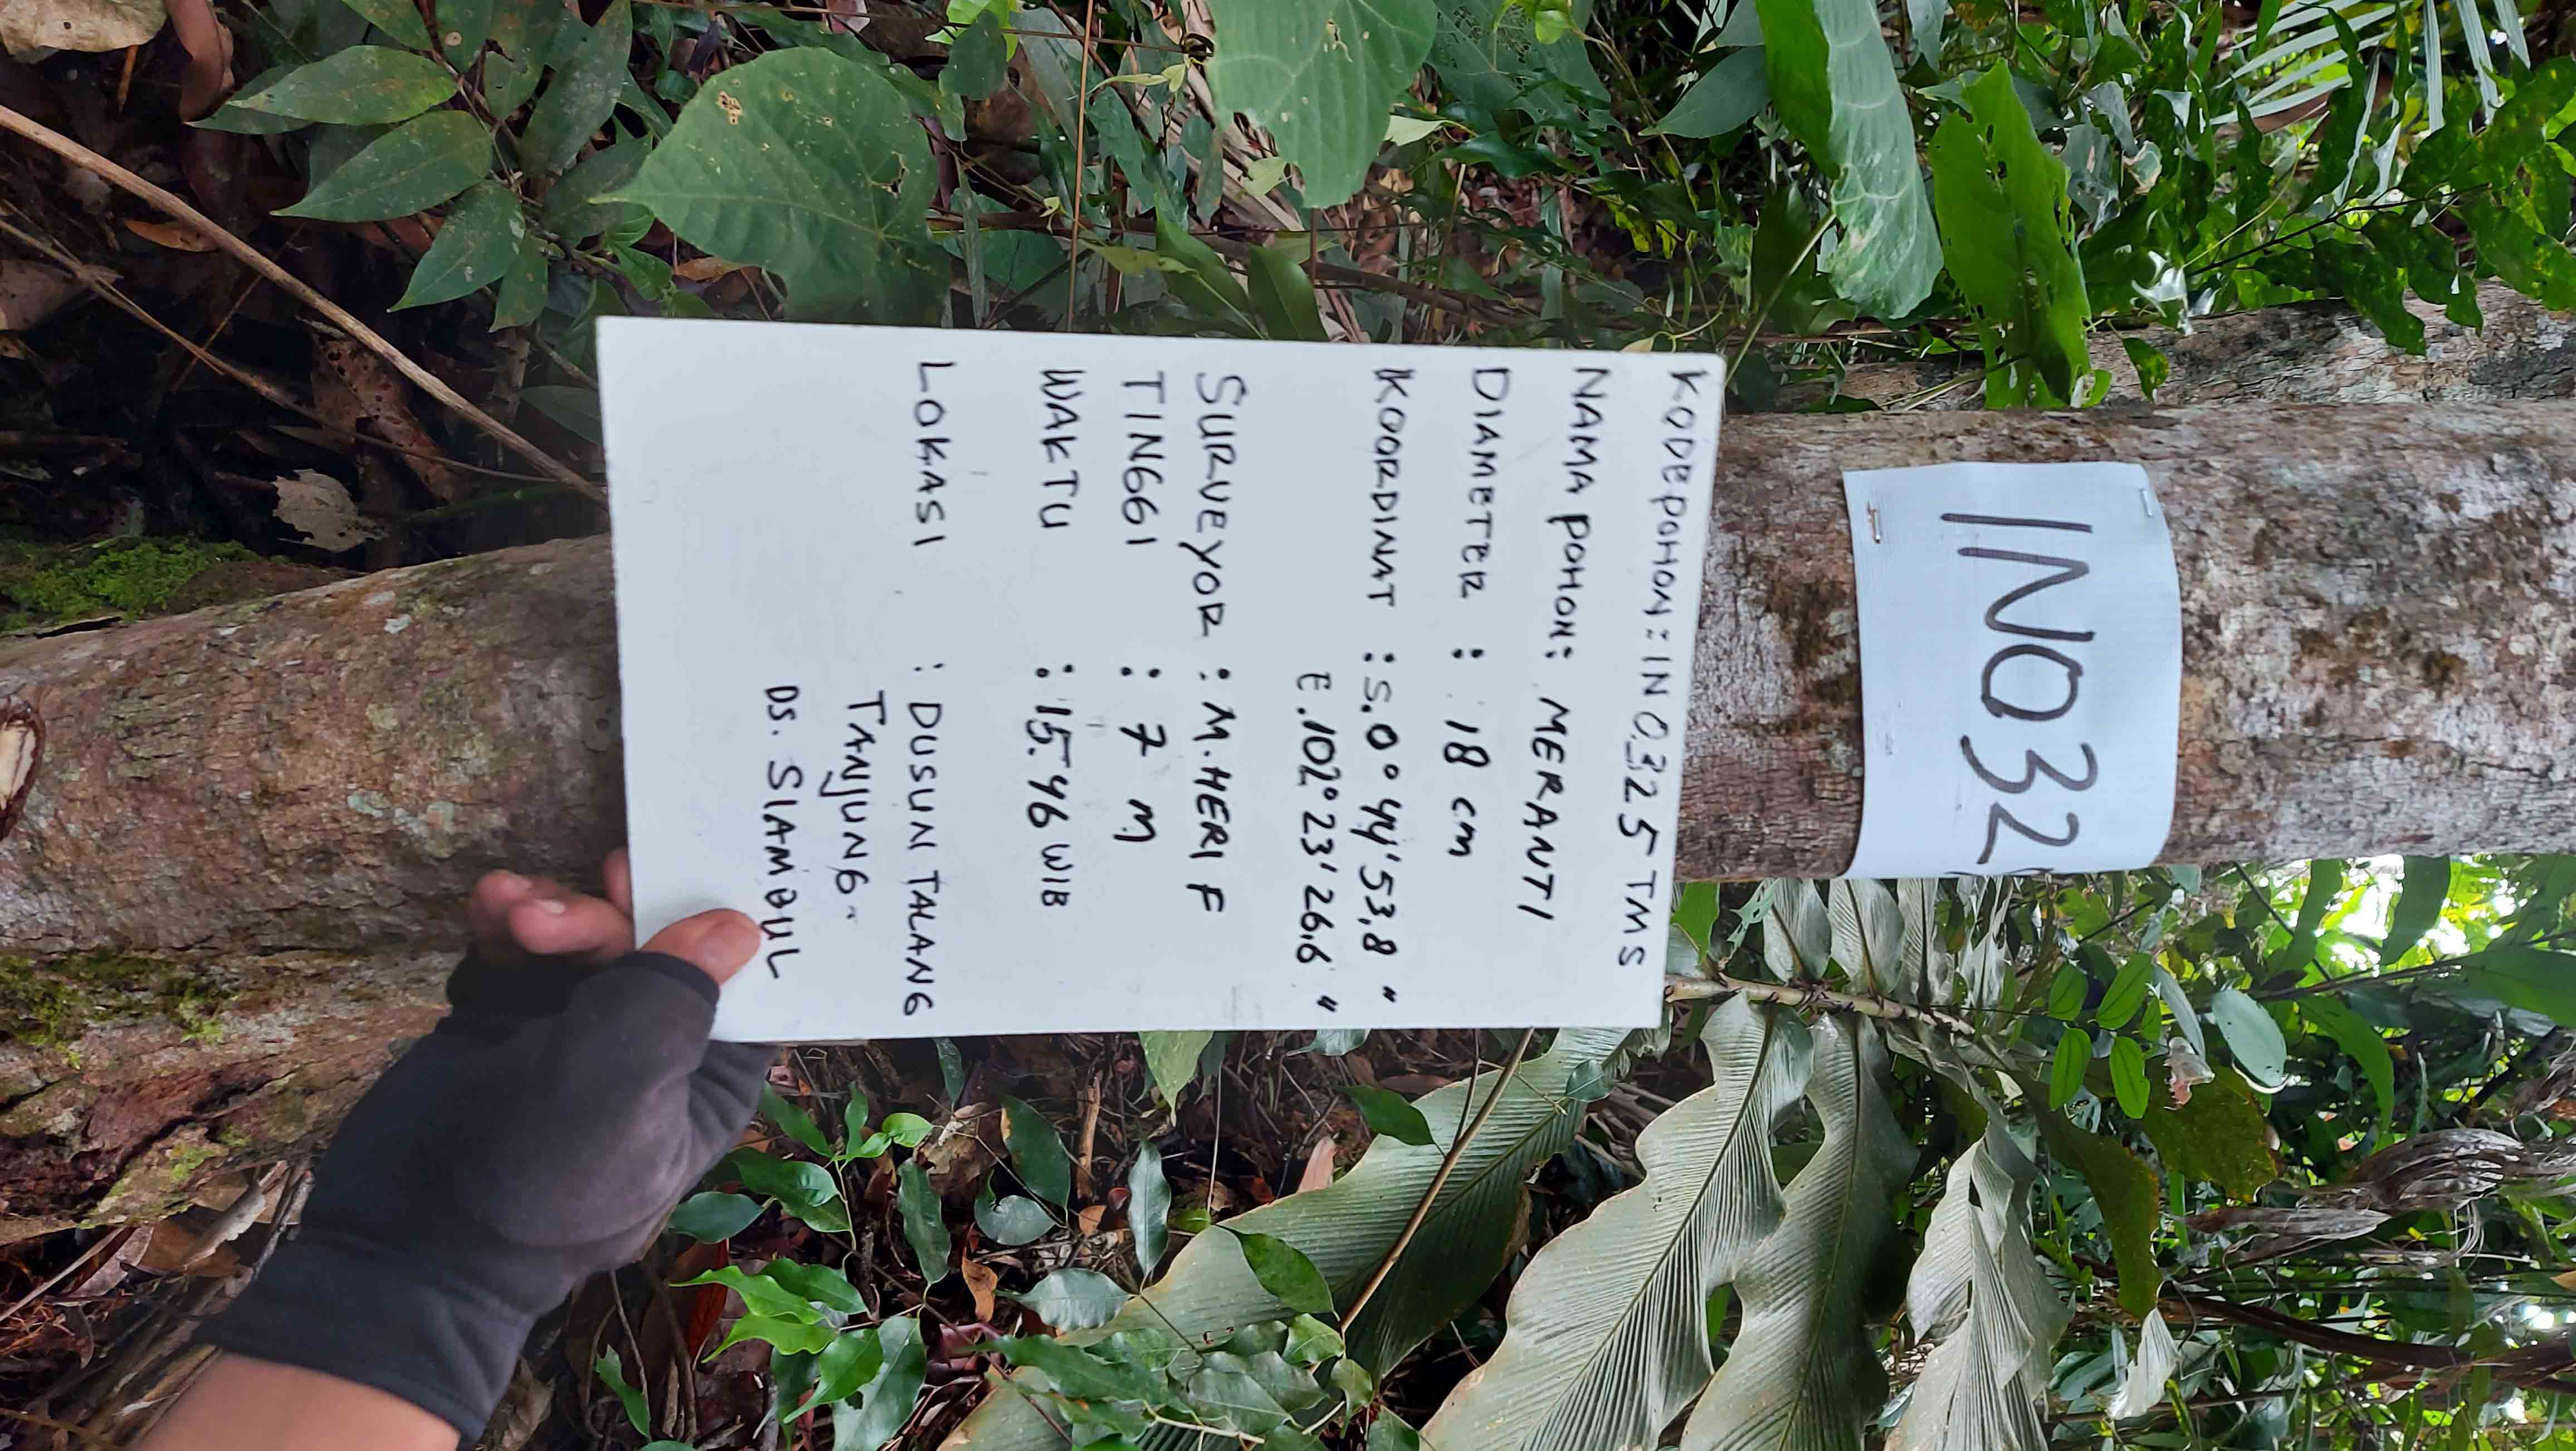 INO32
KODE POHON : IN 0325 TMS
NAMA POHON : MERANTI
DIAMETER : 18 cm
KOORDINAT : S. 0° 44' 53,8 "
E. 102° 23' 26.6 "
SURVEYOR : M. HERI F
TINGGI : 7 M
WAKTU : 15.46 WIB
LOKASI : DUSUN TALANG
TANJUNG.
DS. SIAMBUL